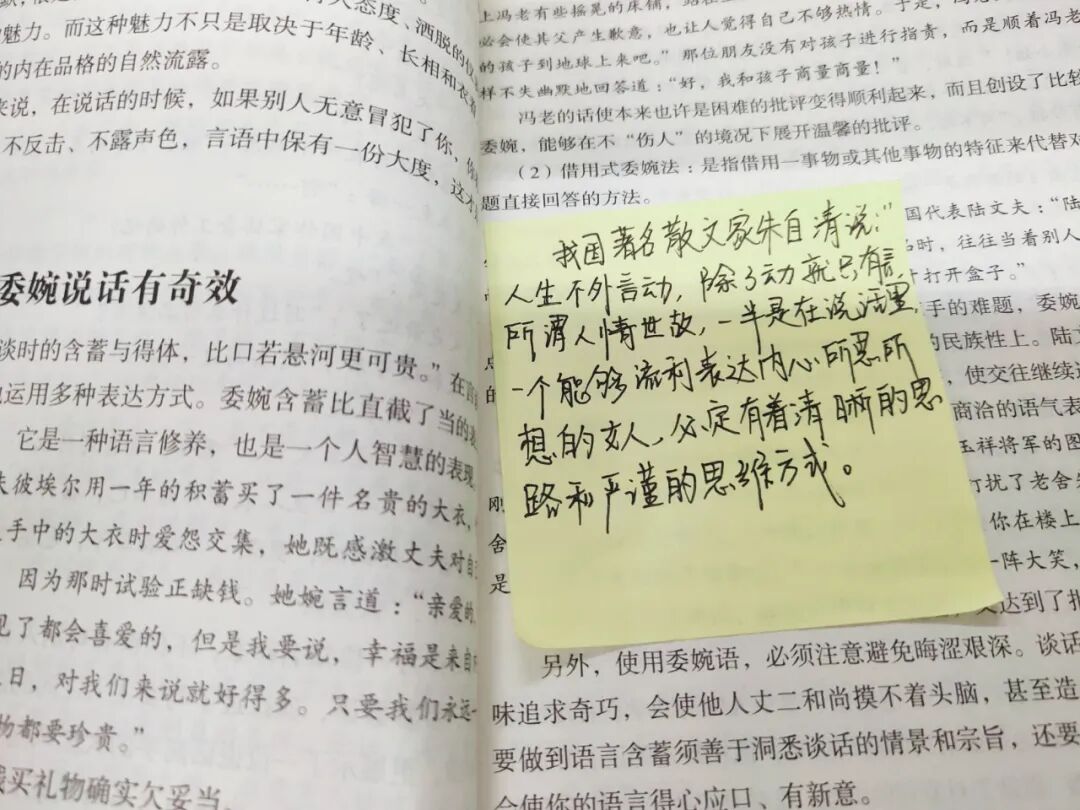 态度,洒脱的
魅力。而这种魅力不只是取决于年龄、长相和衣
的内在品格的自然流露。
来说,在说话的时候,如果别人无意冒犯了你,
不反击、不露声色,言语中保有一份大度,这
委婉说话有奇效
谈时的含蓄与得体,比口若悬河更可贵。”在言
运用多种表达方式。委婉含蓄比直截了当的
它是一种语言修养,也是一个人智慧的表现
彼埃尔用一年的积蓄买了一件名贵的大衣,
手中的大衣时爱怨交集,她既感激丈夫对自
因为那时试验正缺钱。她婉言道:“亲爱的
见了都会喜爱的,但是我要说,幸福是来自
日,对我们来说就好得多。只要我们永远一
物都要珍贵。”
买礼物确实欠妥当。
上冯老有些摇晃的床铺,
必会使其父产生歉意,也让人觉得自己不够热情。于是,
的孩子到地球上来吧。”那位朋友没有对孩子进行指责,而是顺着冯老
样不失幽默地回答道:“好,我和孩子商量商量!”
冯老的话使本来也许是困难的批评变得顺利起来,而且创设了比较
委婉,能够在不“伤人”的境况下展开温馨的批评。
(2)借用式委婉法:是指借用一事物或其他事物的特征来代替对
题直接回答的方法。
国代表陆文夫:“陆
时,往往当着别人
打开盒子。”
手的难题,委婉
的民族性上。陆
使交往继续
商洽的语气表
玉祥将军的图
打扰了老舍
你在楼上
一阵大笑,
又达到了批
点
的
刚
舍
是
我国著名散文家朱自清说:“
人生不外言动,除了动就只有言,
所谓人情世故,一半是在说话里,
一个能够流利表达内心所思所
想的女人,必定有着清晰的思
路和严谨的思维方式。
另外,使用委婉语,必须注意避免晦涩艰深。谈话
味追求奇巧,会使他人丈二和尚摸不着头脑,甚至造
要做到语言含蓄须善于洞悉谈话的情景和宗旨,还要
会使你的语言得心应口、有新意。